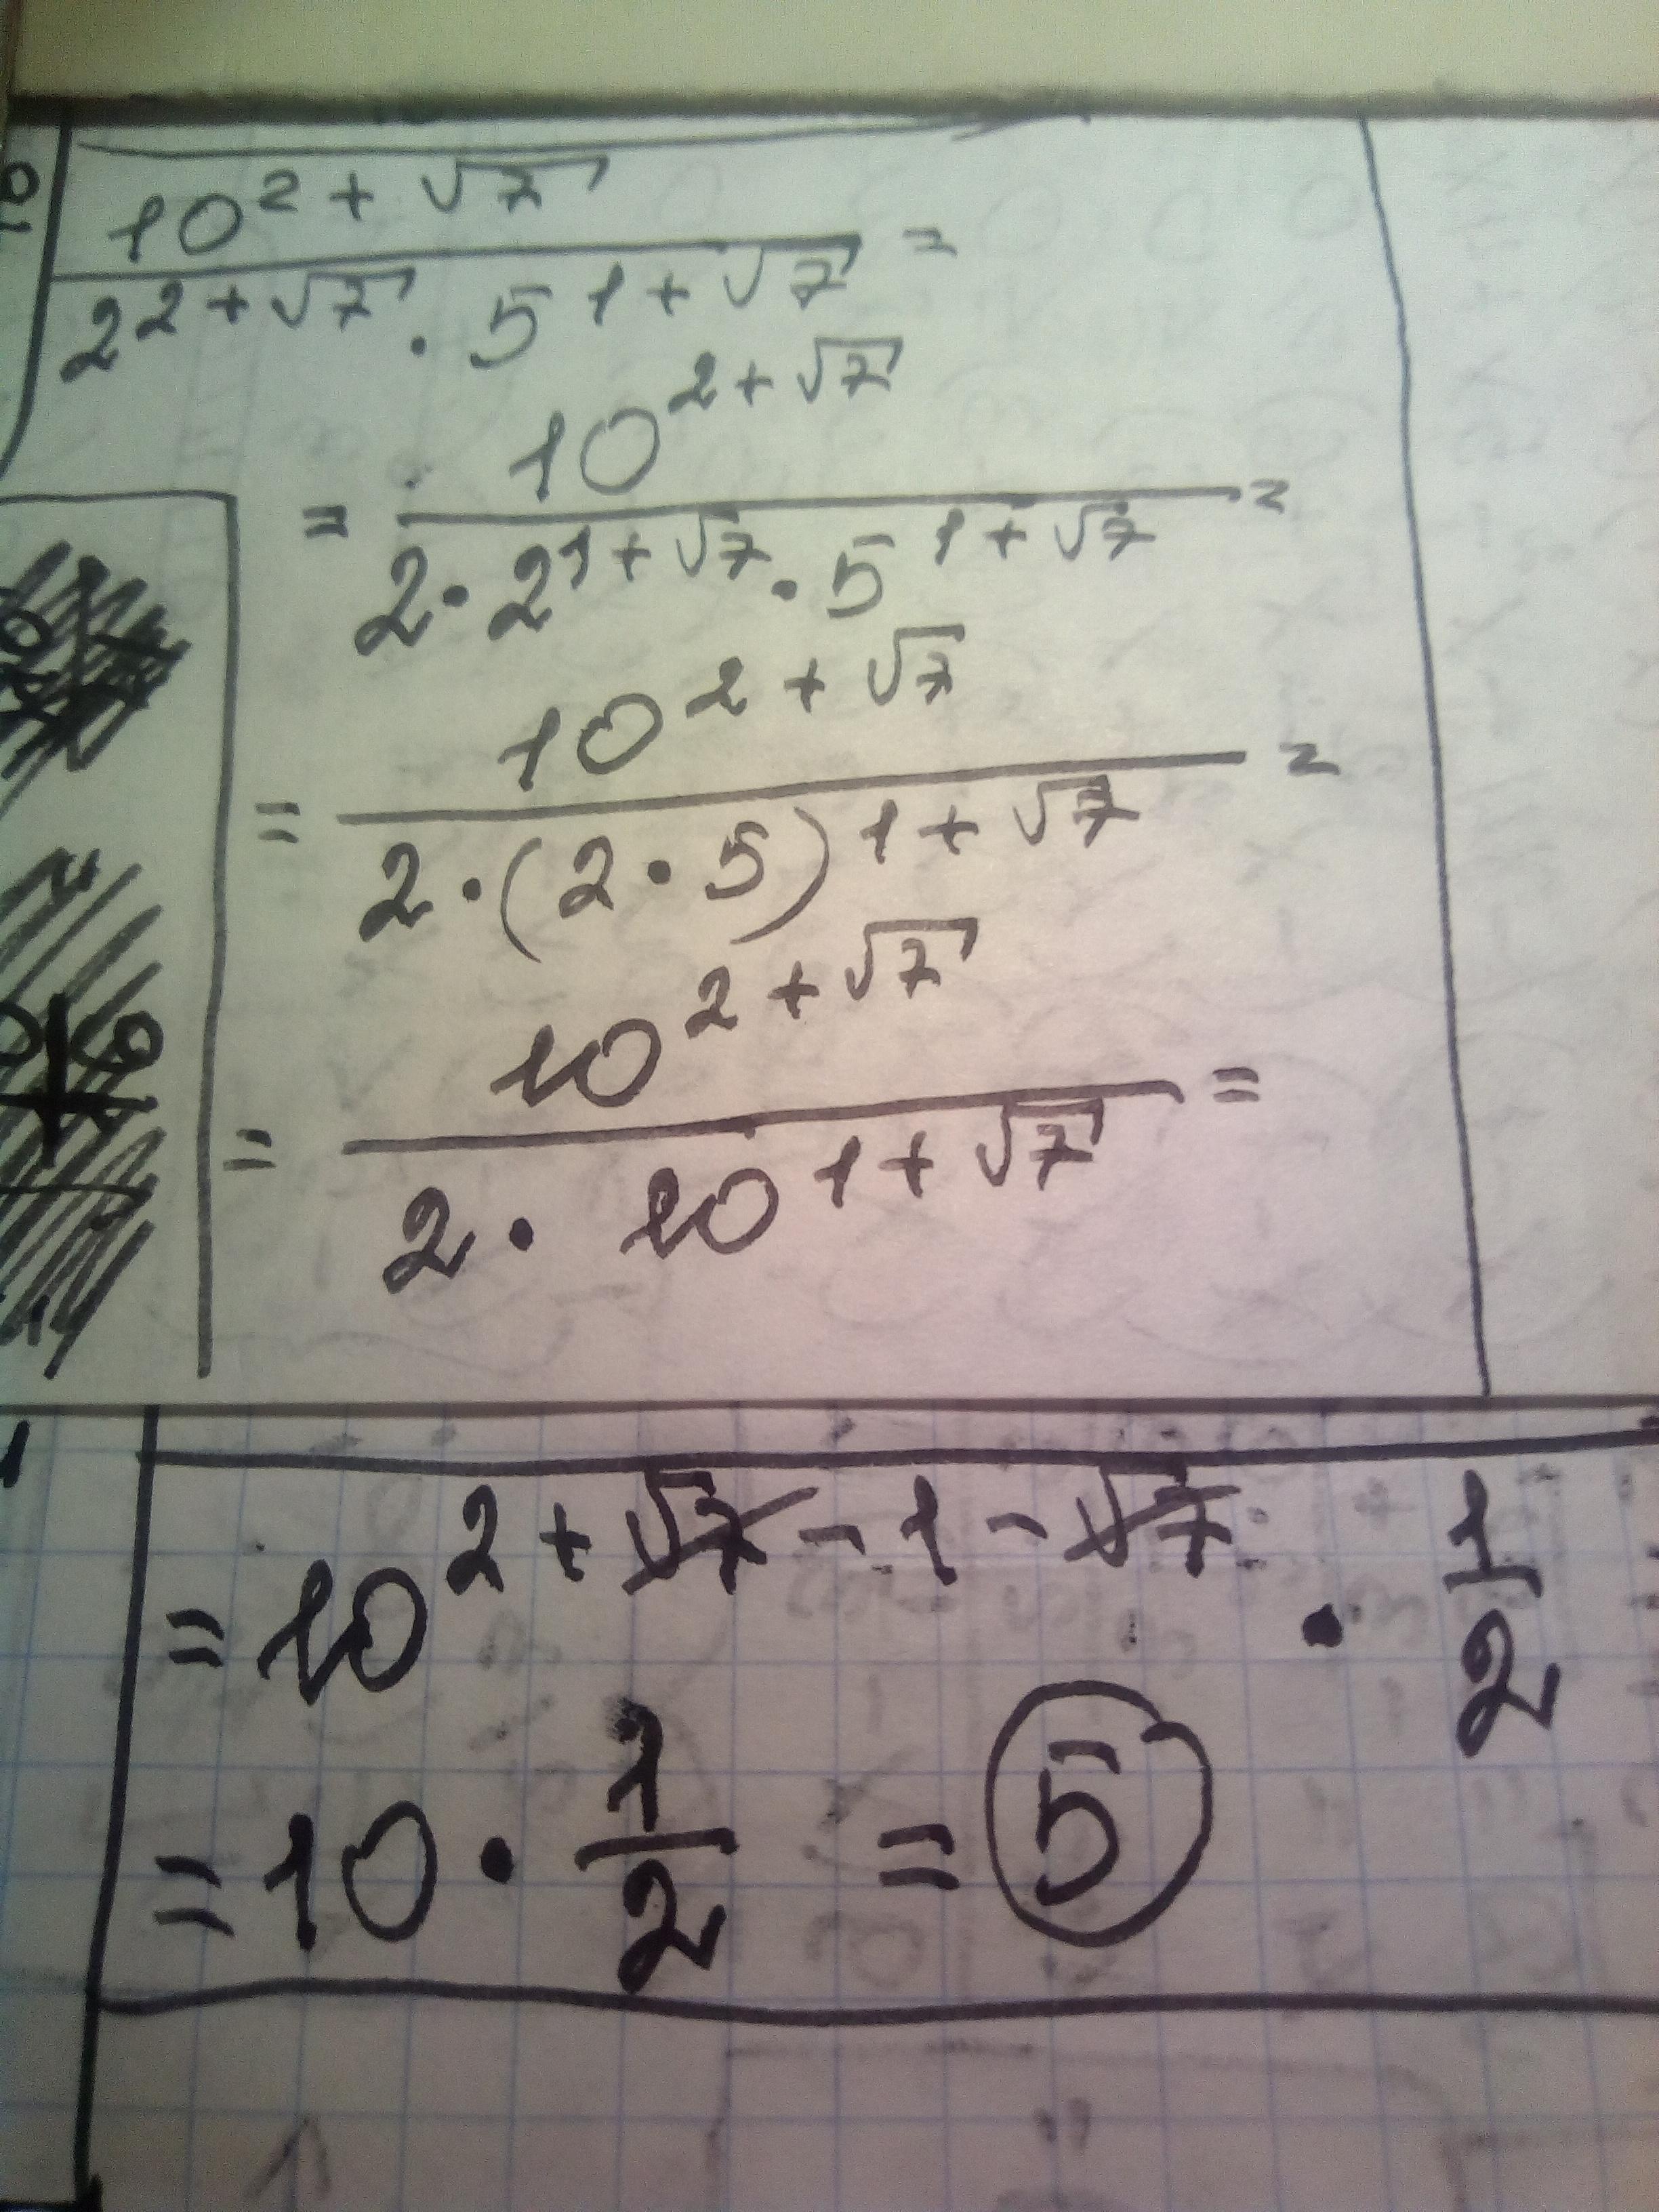 10^{2+√7} / 2^{2+√7} · 5^{1+√7} =
= 10^{2+√7} / 2 · 2^{1+√7} · 5^{1+√7} =
= 10^{2+√7} / 2 · (2 · 5)^{1+√7} =
= 10^{2+√7} / 2 · 10^{1+√7} =
= 10^{2+√7-1-√7} · 1/2
= 10 · 1/2 = 5